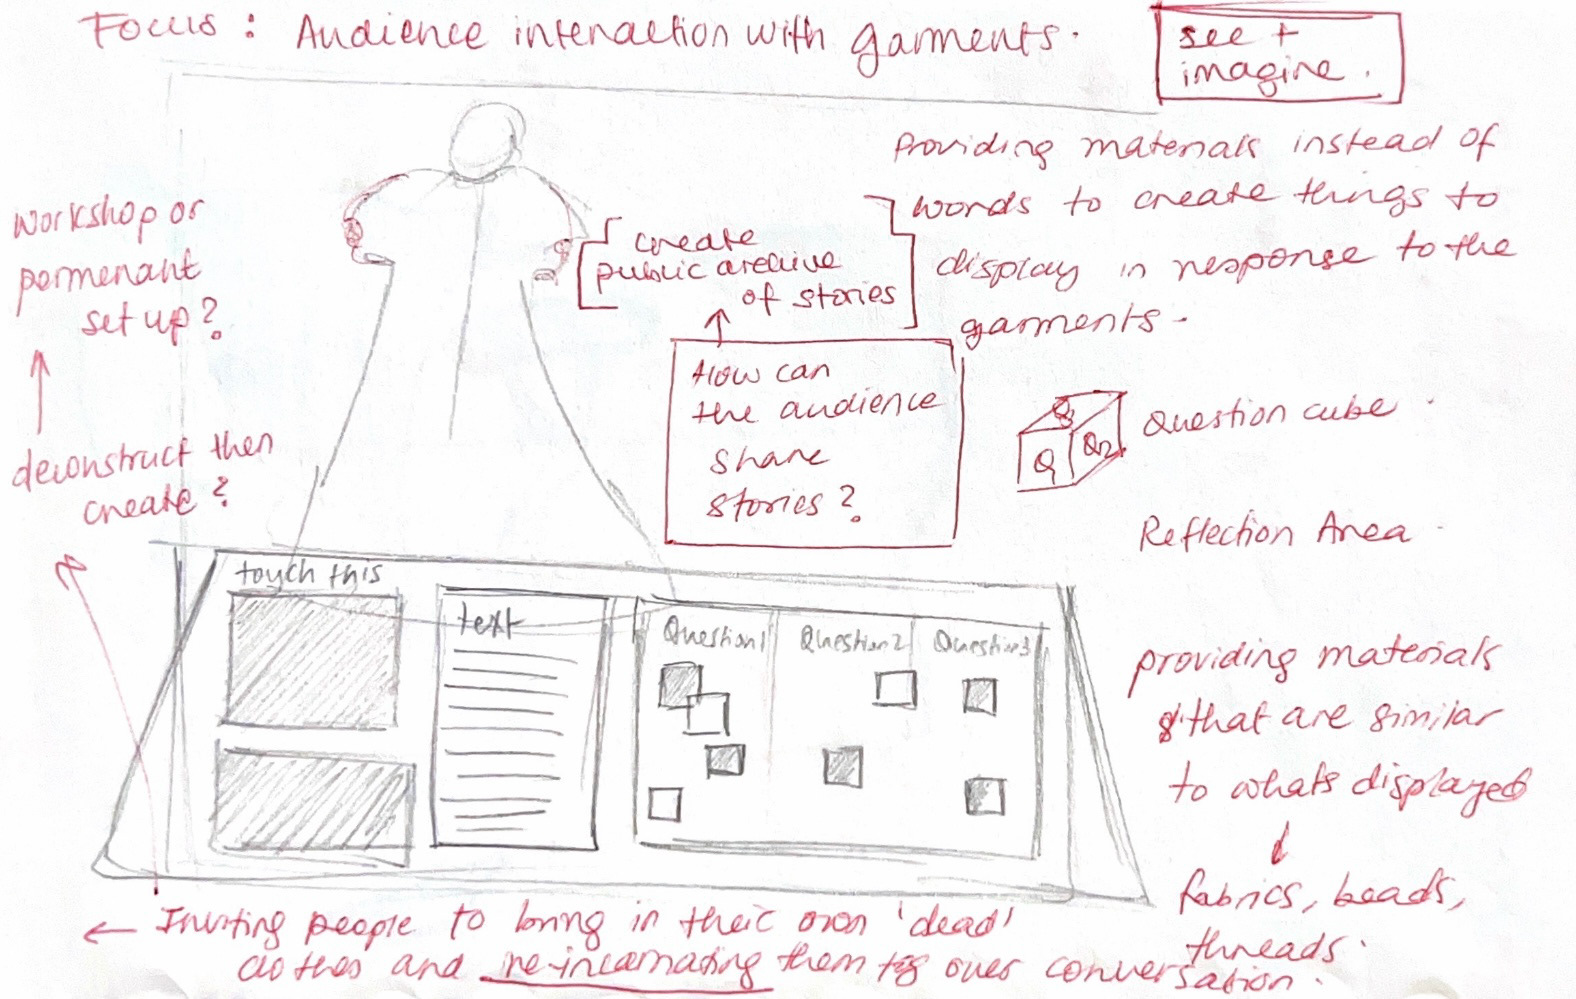 Focus : Audience interaction with garments.
see +
imagine.
Providing materials instead of
words to create things to
display in response to the
garments.
workshop or
permenant
set up?
create
public archive
of stories
How can
the audience
share
stories?
Q3
Q
Q2
Question cube.
deconstruct then
create?
Reflection Area.
touch this
text
Question1
Question2
Question3
providing materials
that are similar
to whats displayed
fabrics, beads,
threads.
Inviting people to bring in their own 'dead'
clothes and re-incarnating them over conversation.